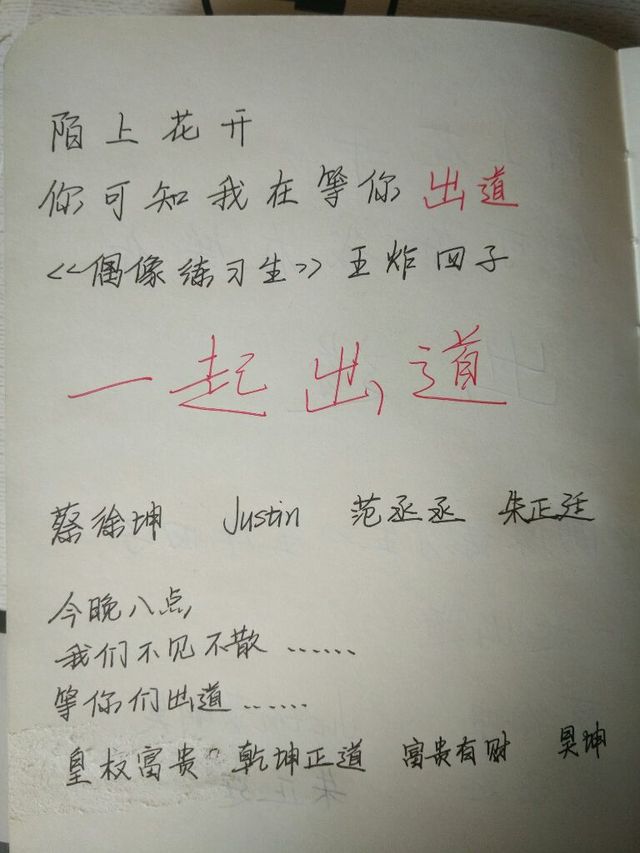 陌上花开
你可知我在等你出道
<<偶像练习生>>王炸四子
一起出道
蔡徐坤 Justin 范丞丞 朱正廷
今晚八点,
我们不见不散……
等你们出道……
皇权富贵 乾坤正道 富贵有财 昊坤